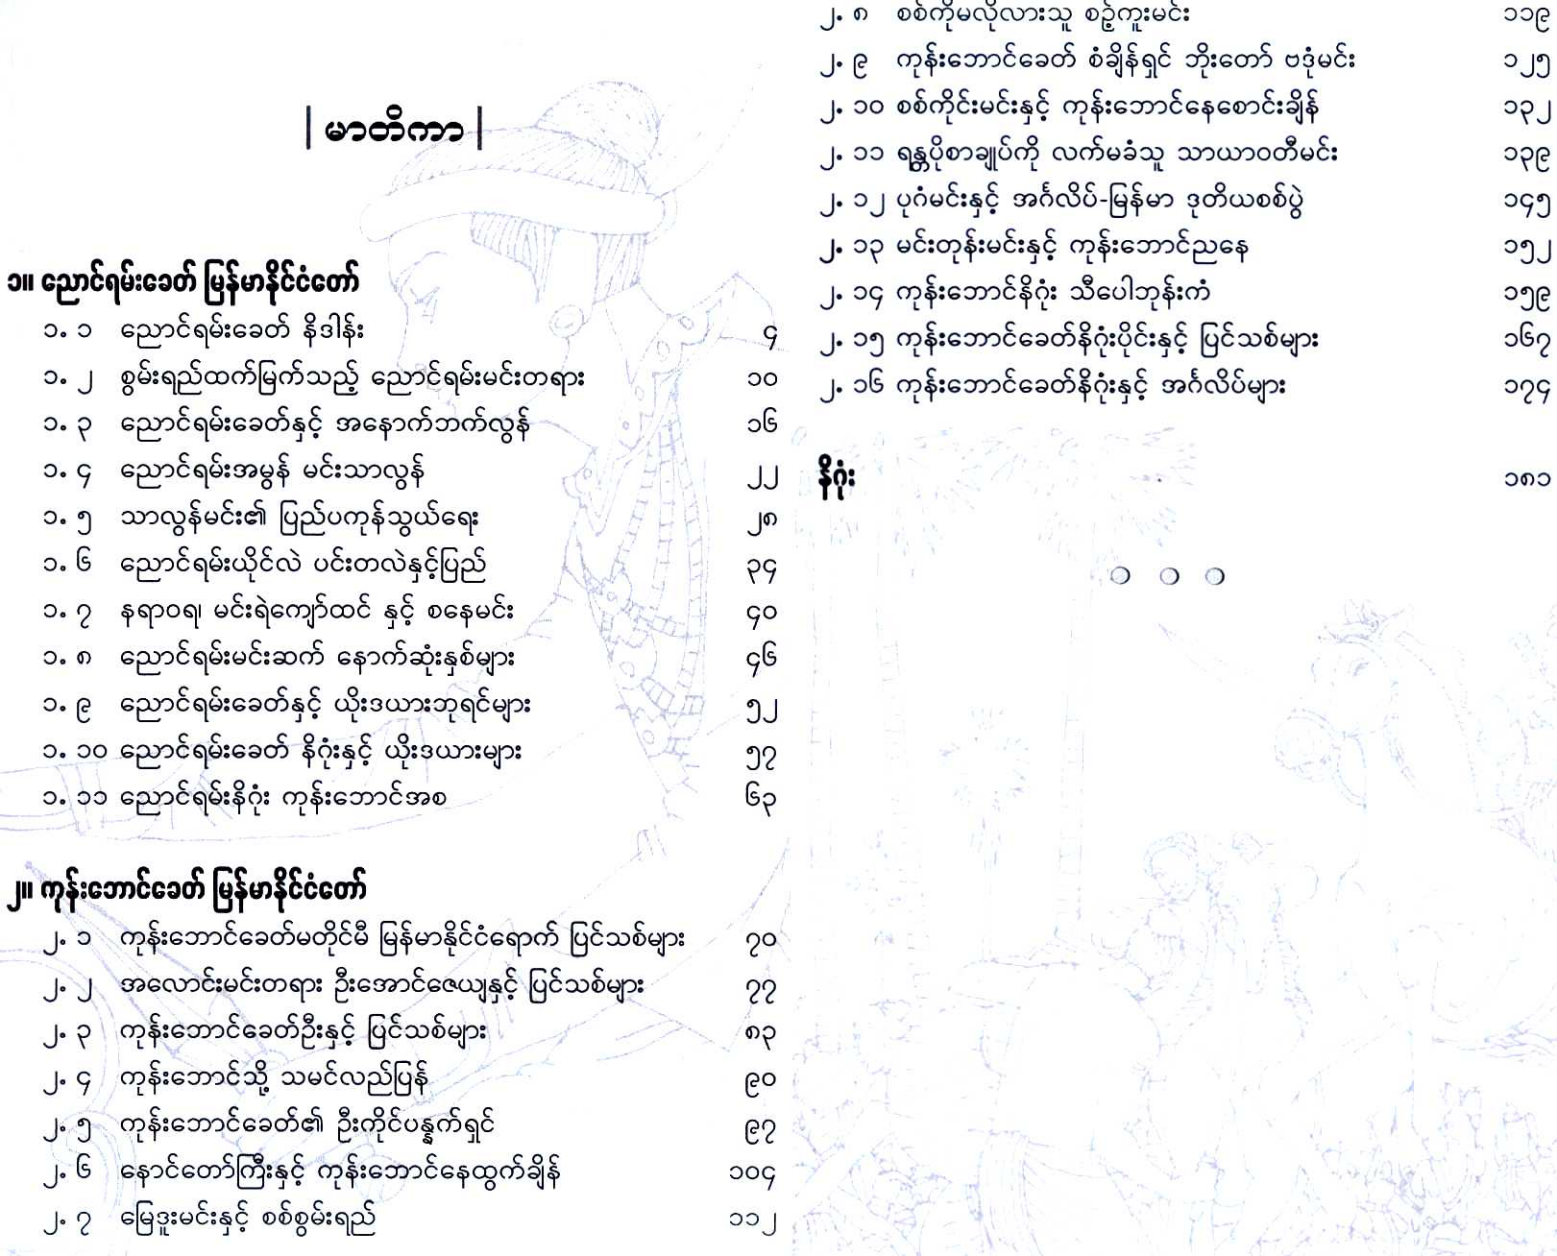 | မာတိကာ |
၁။ ညောင်ရမ်းခေတ် မြန်မာနိုင်ငံတော်
၁. ၁ ညောင်ရမ်းခေတ် နိဒါန်း ၄
၁. ၂ စွမ်းရည်ထက်မြက်သည့် ညောင်ရမ်းမင်းတရား ၁၀
၁. ၃ ညောင်ရမ်းခေတ်နှင့် အနောက်ဘက်လွန် ၁၆
၁. ၄ ညောင်ရမ်းအမွန် မင်းသာလွန် ၂၂
၁. ၅ သာလွန်မင်း၏ ပြည်ပကုန်သွယ်ရေး ၂၈
၁. ၆ ညောင်ရမ်းယိုင်လဲ ပင်းတလဲနှင့်ပြည် ၃၄
၁. ၇ နရာဝရ၊ မင်းရဲကျော်ထင် နှင့် စနေမင်း ၄၀
၁. ၈ ညောင်ရမ်းမင်းဆက် နောက်ဆုံးနှစ်များ ၄၆
၁. ၉ ညောင်ရမ်းခေတ်နှင့် ယိုးဒယားဘုရင်များ ၅၂
၁. ၁၀ ညောင်ရမ်းခေတ် နိဂုံးနှင့် ယိုးဒယားများ ၅၇
၁. ၁၁ ညောင်ရမ်းနိဂုံး ကုန်းဘောင်အစ ၆၃
၂။ ကုန်းဘောင်ခေတ် မြန်မာနိုင်ငံတော်
၂. ၁ ကုန်းဘောင်ခေတ်မတိုင်မီ မြန်မာနိုင်ငံရောက် ပြင်သစ်များ ၇၀
၂. ၂ အလောင်းမင်းတရား ဦးအောင်ဇေယျနှင့် ပြင်သစ်များ ၇၇
၂. ၃ ကုန်းဘောင်ခေတ်ဦးနှင့် ပြင်သစ်များ ၈၃
၂. ၄ ကုန်းဘောင်သို့ သမင်လည်ပြန် ၉၀
၂. ၅ ကုန်းဘောင်ခေတ်၏ ဦးကိုင်ပန္နက်ရှင် ၉၇
၂. ၆ နောင်တော်ကြီးနှင့် ကုန်းဘောင်နေထွက်ချိန် ၁၀၄
၂. ၇ မြေဒူးမင်းနှင့် စစ်စွမ်းရည် ၁၁၂
၂. ၈ စစ်ကိုမလိုလားသူ စဉ့်ကူးမင်း ၁၁၉
၂. ၉ ကုန်းဘောင်ခေတ် စံချိန်ရှင် ဘိုးတော် ဗဒုံမင်း ၁၂၅
၂. ၁၀ စစ်ကိုင်းမင်းနှင့် ကုန်းဘောင်နေစောင်းချိန် ၁၃၂
၂. ၁၁ ရန္တပိုစာချုပ်ကို လက်မခံသူ သာယာဝတီမင်း ၁၃၉
၂. ၁၂ ပုဂံမင်းနှင့် အင်္ဂလိပ်-မြန်မာ ဒုတိယစစ်ပွဲ ၁၄၅
၂. ၁၃ မင်းတုန်းမင်းနှင့် ကုန်းဘောင်ညနေ ၁၅၂
၂. ၁၄ ကုန်းဘောင်နိဂုံး သီပေါဘုန်းကံ ၁၅၉
၂. ၁၅ ကုန်းဘောင်ခေတ်နိဂုံးပိုင်းနှင့် ပြင်သစ်များ ၁၆၇
၂. ၁၆ ကုန်းဘောင်ခေတ်နိဂုံးနှင့် အင်္ဂလိပ်များ ၁၇၄
နိဂုံး ၁၈၁